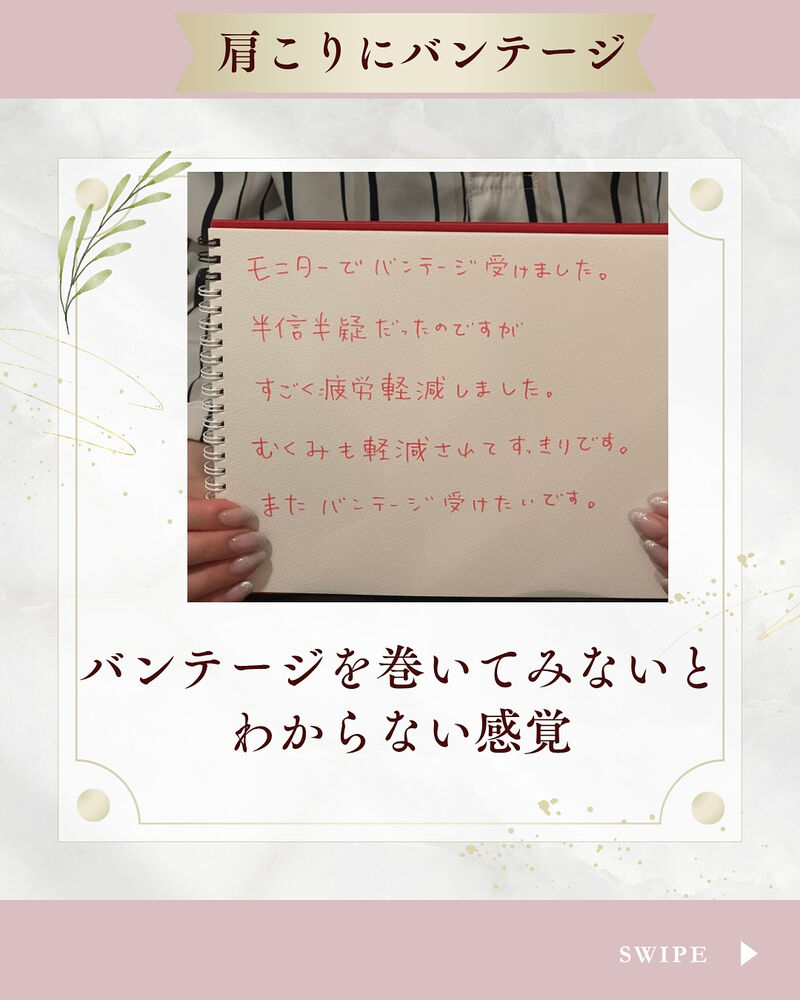 肩こりにバンテージ
モニターでバンテージ受けました。
半信半疑だったのですが
すごく疲労軽減しました。
むくみも軽減されてすっきりです。
またバンテージ受けたいです。
バンテージを巻いてみないと
わからない感覚
SWIPE